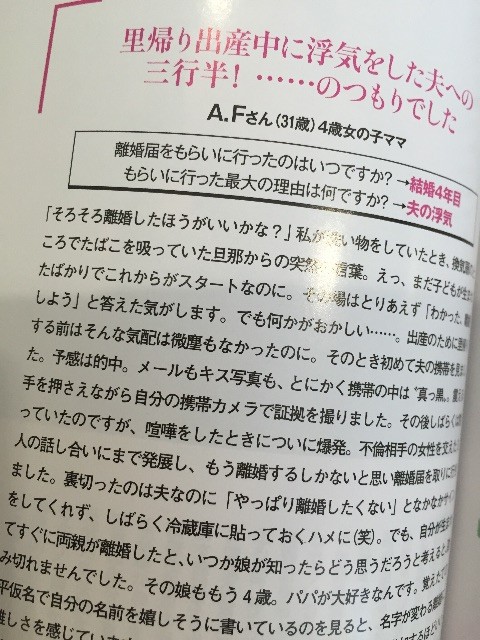 里帰り出産中に浮気をした夫への
三行半！……のつもりでした
A.Fさん（31歳）4歳女の子ママ
離婚届をもらいに行ったのはいつですか？→結婚4年目
もらいに行った最大の理由は何ですか？→夫の浮気
「そろそろ離婚したほうがいいかな？」私が洗い物をしていたとき、換気扇の
ころでたばこを吸っていた旦那からの突然の言葉。えっ、まだ子どもが生まれ
たばかりでこれからがスタートなのに。その場はとりあえず「わかった、離婚
しよう」と答えた気がします。でも何かがおかしい……。出産のために里帰り
する前はそんな気配は微塵もなかったのに。そのとき初めて夫の携帯を見まし
た。予感は的中。メールもキス写真も、とにかく携帯の中は“真っ黒”。震える
手を押さえながら自分の携帯カメラで証拠を撮りました。その後しばらくは
っていたのですが、喧嘩をしたときについに爆発。不倫相手の女性を交えた
人の話し合いにまで発展し、もう離婚するしかないと思い離婚届を取りに行き
ました。裏切ったのは夫なのに「やっぱり離婚したくない」となかなかサイン
をしてくれず、しばらく冷蔵庫に貼っておくハメに（笑）。でも、自分が生まれ
てすぐに両親が離婚したと、いつか娘が知ったらどう思うだろうと考えると
み切れませんでした。その娘ももう4歳。パパが大好きなんです。覚えたて
平仮名で自分の名前を嬉しそうに書いているのを見ると、名字が変わる離婚
難しさを感じています